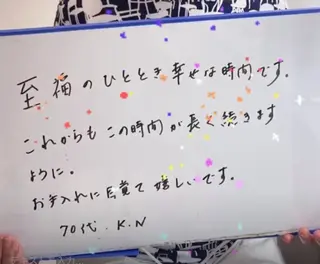 至福のひととき幸せな時間です。
これからもこの時間が長く続きます
ように。
お手入れに目覚て嬉しいです。
70代 K.N